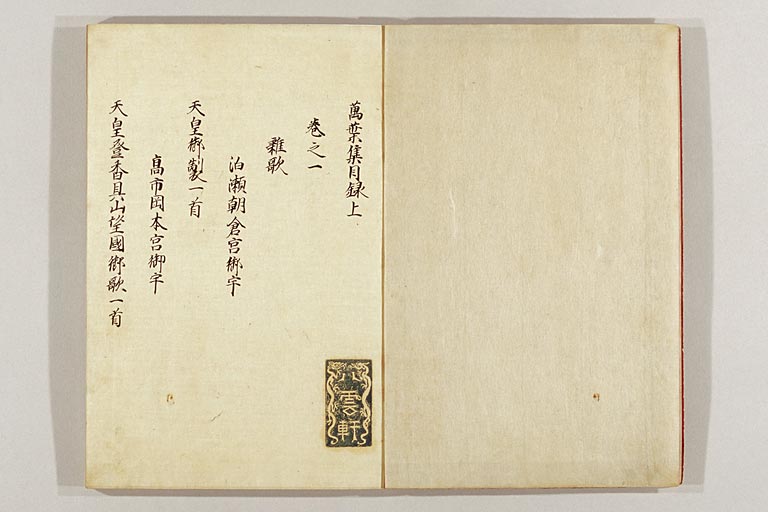 萬葉集目録上
卷之一
雜歌
泊瀬朝倉宮御宇
天皇御製一首
高市岡本宮御宇
天皇登香具山望國御歌一首
八雲軒